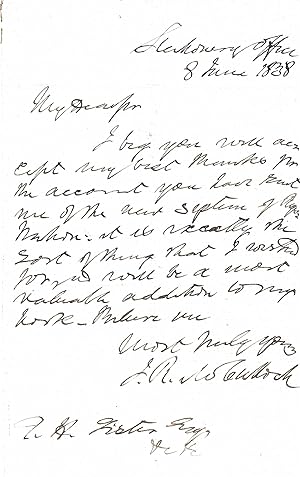 Stationery Office
8 June 1838
My Dear Sir
I beg you will ac
cept my best thanks for
the account you have sent
me of the new system of Regis
tration. it is exactly the
sort of thing that I wanted
for, & will be a most
valuable addition to my
book - Believe me
Most truly yours
J. R. McCulloch
T. H. Lister Esq.